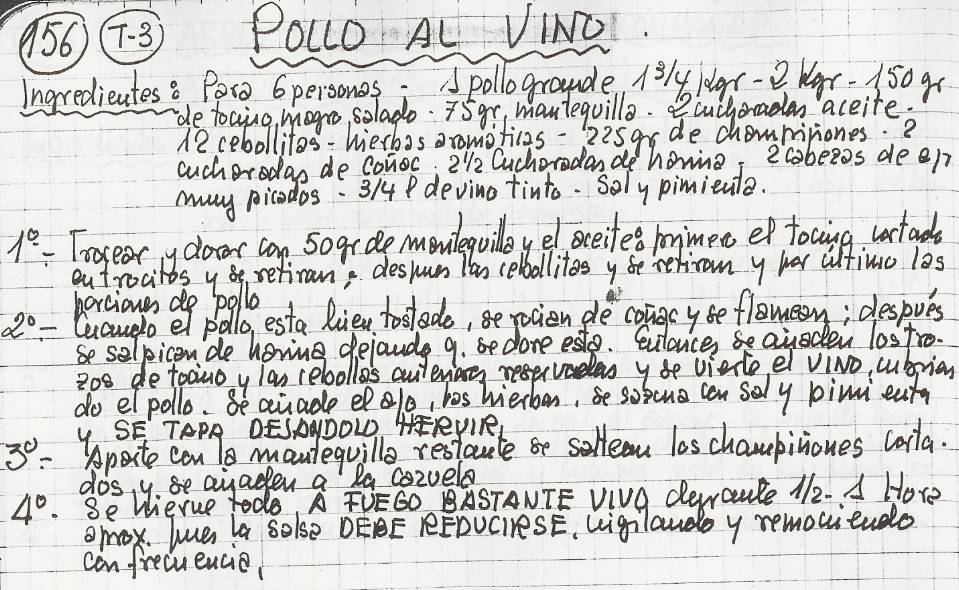 156 T-3 POLLO AL VINO.
Ingredientes: Para 6 personas - 1 pollo grande 1 3/4 Kgr - 2 Kgr - 150 gr
de tocino magro salado - 75 gr, mantequilla - 2 cucharadas aceite -
12 cebollitas - hierbas aromáticas - 225 gr de champiñones - 2
cucharadas de coñac - 2 1/2 cucharadas de harina - 2 cabezas de ajo
muy picados - 3/4 l de vino tinto - Sal y pimienta.
1º - Trocear y dorar con 50 gr de mantequilla y el aceite: primero el tocino cortado
en trocitos y se retiran; despues las cebollitas y se retiran y por último las
porciones de pollo
2º - Cuando el pollo esta bien tostado, se rocian de coñac y se flamean; después
se salpican de harina dejando q. se dore esta. Entonces se añaden los tro-
zos de tocino y las cebollas anteriores reservadas y se vierte el VINO, cubrien
do el pollo. Se añade el ajo, las hierbas, se sazona con sal y pimienta
y SE TAPA DEJANDOLO HERVIR,
3º - Aparte con la mantequilla restante se saltean los champiñones corta-
dos y se añaden a la cazuela
4º. Se hierve todo A FUEGO BASTANTE VIVO durante 1/2 - 1 Hora
aprox. pues la salsa DEBE REDUCIRSE, vigilando y removiendo
con frecuencia,